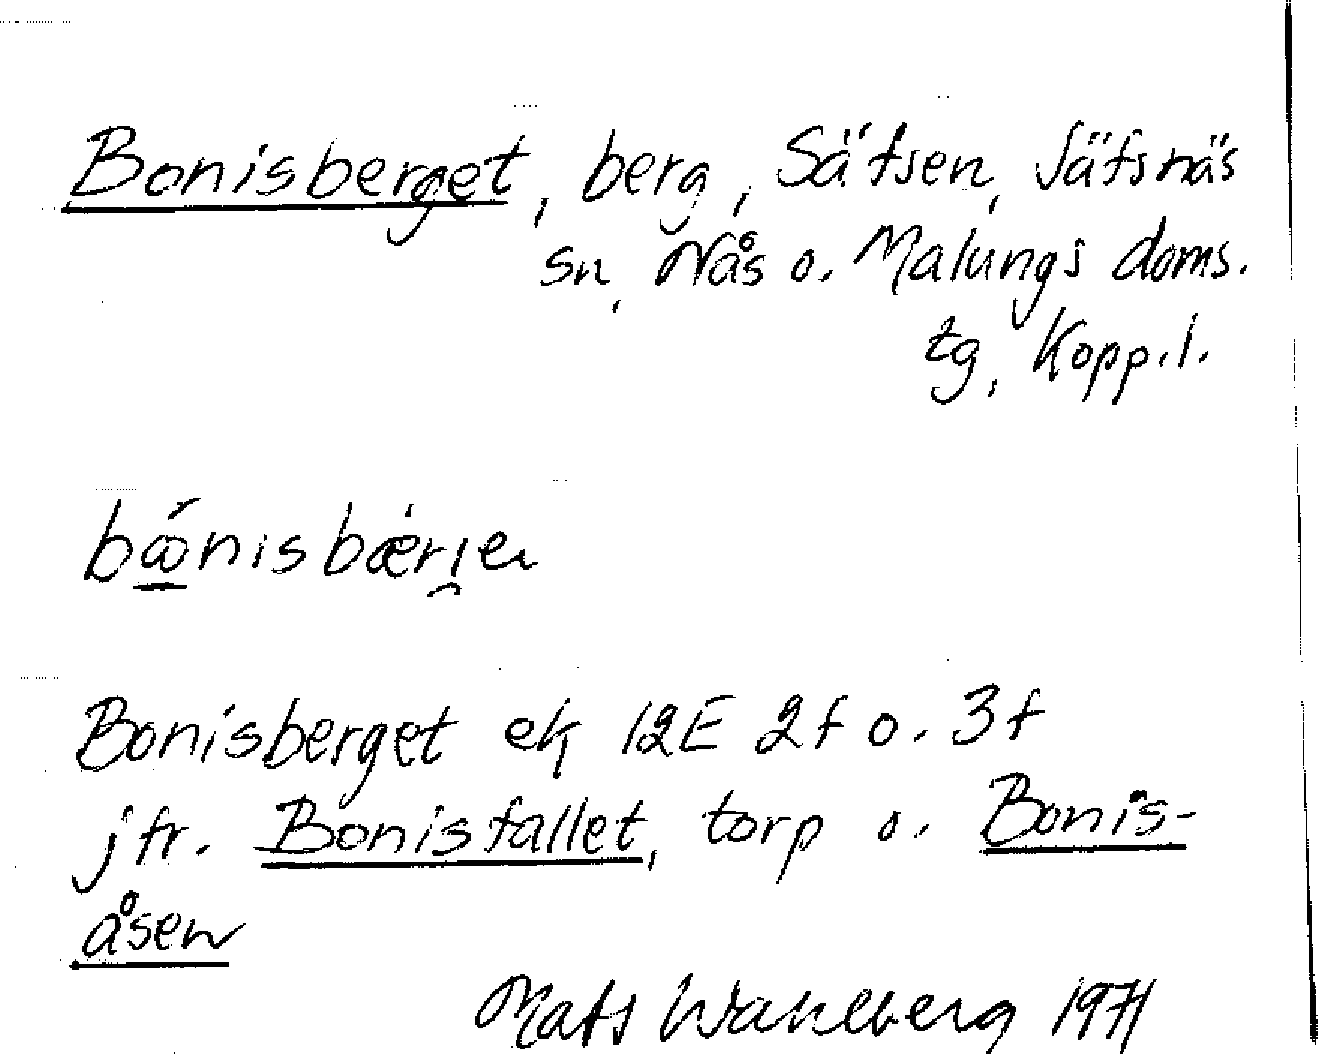 Bonisberget, berg, Sätsen, Sätsnäs
sn, Nås o. Malungs doms.
tg, Kopp. l.
bǿnisbærjen
Bonisberget ek 12E 2f o. 3f
jfr. Bonisfallet, torp o. Bonis-
åsen
Mats Wahlberg 1971